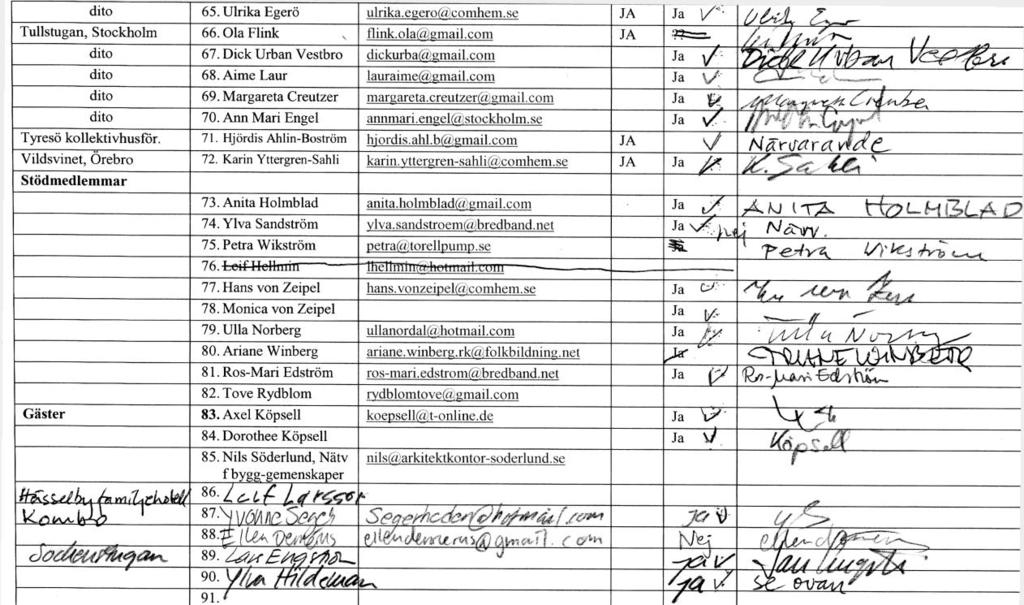 dito 65. Ulrika Egerö ulrika.egero@comhem.se JA Ja
Tullstugan, Stockholm 66. Ola Flink flink.ola@gmail.com JA
dito 67. Dick Urban Vestbro dickurba@gmail.com Ja Dick Urban Vestbro
dito 68. Aime Laur lauraime@gmail.com Ja
dito 69. Margareta Creutzer margareta.creutzer@gmail.com Ja
dito 70. Ann Mari Engel annmari.engel@stockholm.se Ja
Tyresö kollektivhusför. 71. Hjördis Ahlin-Boström hjordis.ahl.b@gmail.com JA Närvarande
Vildsvinet, Örebro 72. Karin Yttergren-Sahli karin.yttergren-sahli@comhem.se JA Ja K. Sahli
Stödmedlemmar
73. Anita Holmblad anita.holmblad@gmail.com Ja ANITA HOLMBLAD
74. Ylva Sandström ylva.sandstroem@bredband.net Ja nej Närv.
75. Petra Wikström petra@torellpump.se Petra Wikström
76. Leif Hellmin lhellmin@hotmail.com
77. Hans von Zeipel hans.vonzeipel@comhem.se Ja
78. Monica von Zeipel Ja
79. Ulla Norberg ullanordal@hotmail.com Ja Ulla Norberg
80. Ariane Winberg ariane.winberg.rk@folkbildning.net Ja ARIANE WINBERG
81. Ros-Mari Edström ros-mari.edstrom@bredband.net Ja Ros-Mari Edström
82. Tove Rydblom rydblomtove@gmail.com
Gäster 83. Axel Köpsell koepsell@t-online.de Ja
84. Dorothee Köpsell Ja Köpsell
85. Nils Söderlund, Nätv nils@arkitektkontor-soderlund.se
f bygg-gemenskaper
Hässelby familjehotell 86. Leif Larsson
Kombo 87. Yvonne Seger Segerheden@hotmail.com Ja
88. Ellen Demérus ellendemerus@gmail.com Nej
Sockenstugan 89. Lars Engström ja
90. Ylva Hildeman ja se ovan
91.